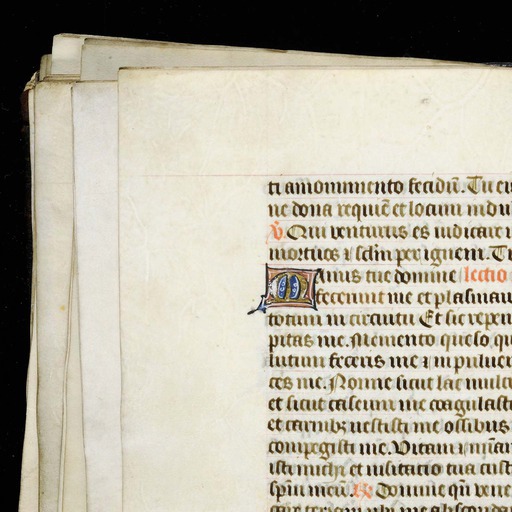 ti a monumento fetidũ. Tu ei
ne dona requiē et locum indu
℣ Qui venturus es iudicare
mortuos ⁊ sclm per ignem. Tu
Manus tue domine lectio
fecerunt me et plasmau
totum in circuitu Et sic repen
pitas me. Memento queso qu
lutum feceris me ⁊ in puluer
ces me. Nonne sicut lac mulc
et sicut caseum me coagulasti
et carnibꝫ uestisti me ossibus
compegisti me. Vitam ⁊ mĩam
isti michi et uisitacio tua cust
spm meũ. ℟ Domine qñ vene